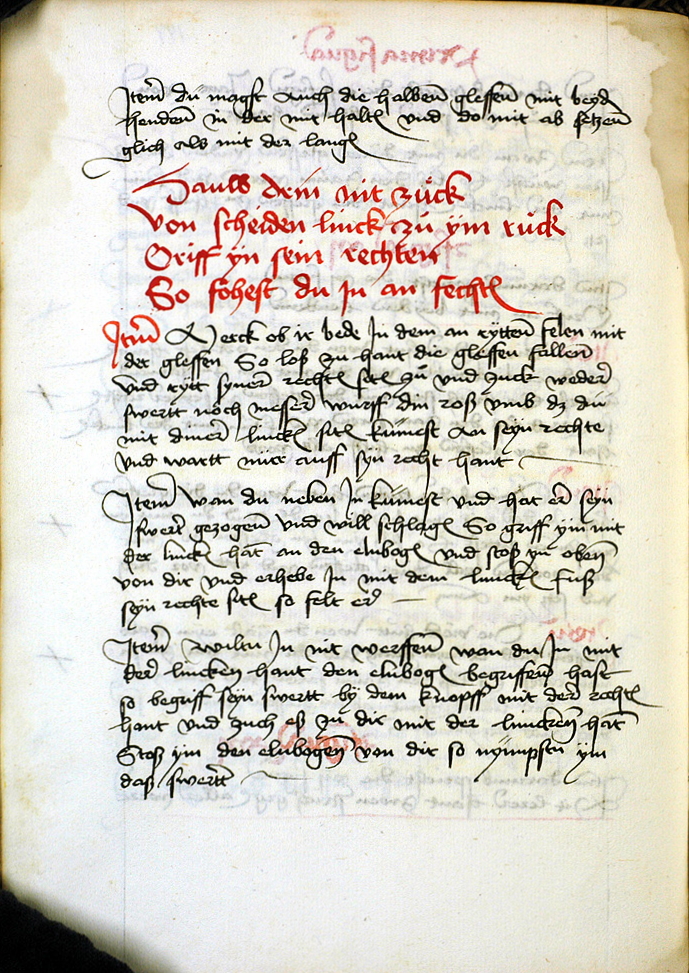 Item du magst Auch die halbenn gleffenn mit beyd
hendenn in der mit halten und do mit ab setzenn
glich als mit der langen
Hauss dein nit zuck
Von scheiden linck zu ym ruck
Griff yn sein rechten
So fohest du In an fechten
Item Merck ob ir bede In dem an ryttenn felen mit
der gleffen So loß zu hant die gleffen fallenn
und rytt syner rechten siten zu und zuck weder
swertt noch messer wurff din roß umb dz du
mit diner lincken siten kumest An seyn rechte
und wartt nur auff syn recht hant
Item wan du neben In kumest und hat er seyn
swert gezogenn und will schlagen So griff ym mit
der lincken hant an den elnbogen und stoß yn oben
von dir und erhebe In mit dem lincken fuß
seyn rechte siten so felt er
Item wiltu In nit werffenn wan du In mit
der lincken hant den elnbogen begriffenn hast
so begriff seyn swertt by dem knopff mit der rechten
hant und zuch eß zu dir mit der linckenn hant
Stoß ym den elnbogenn von dir so nympstu ym
daß swertt